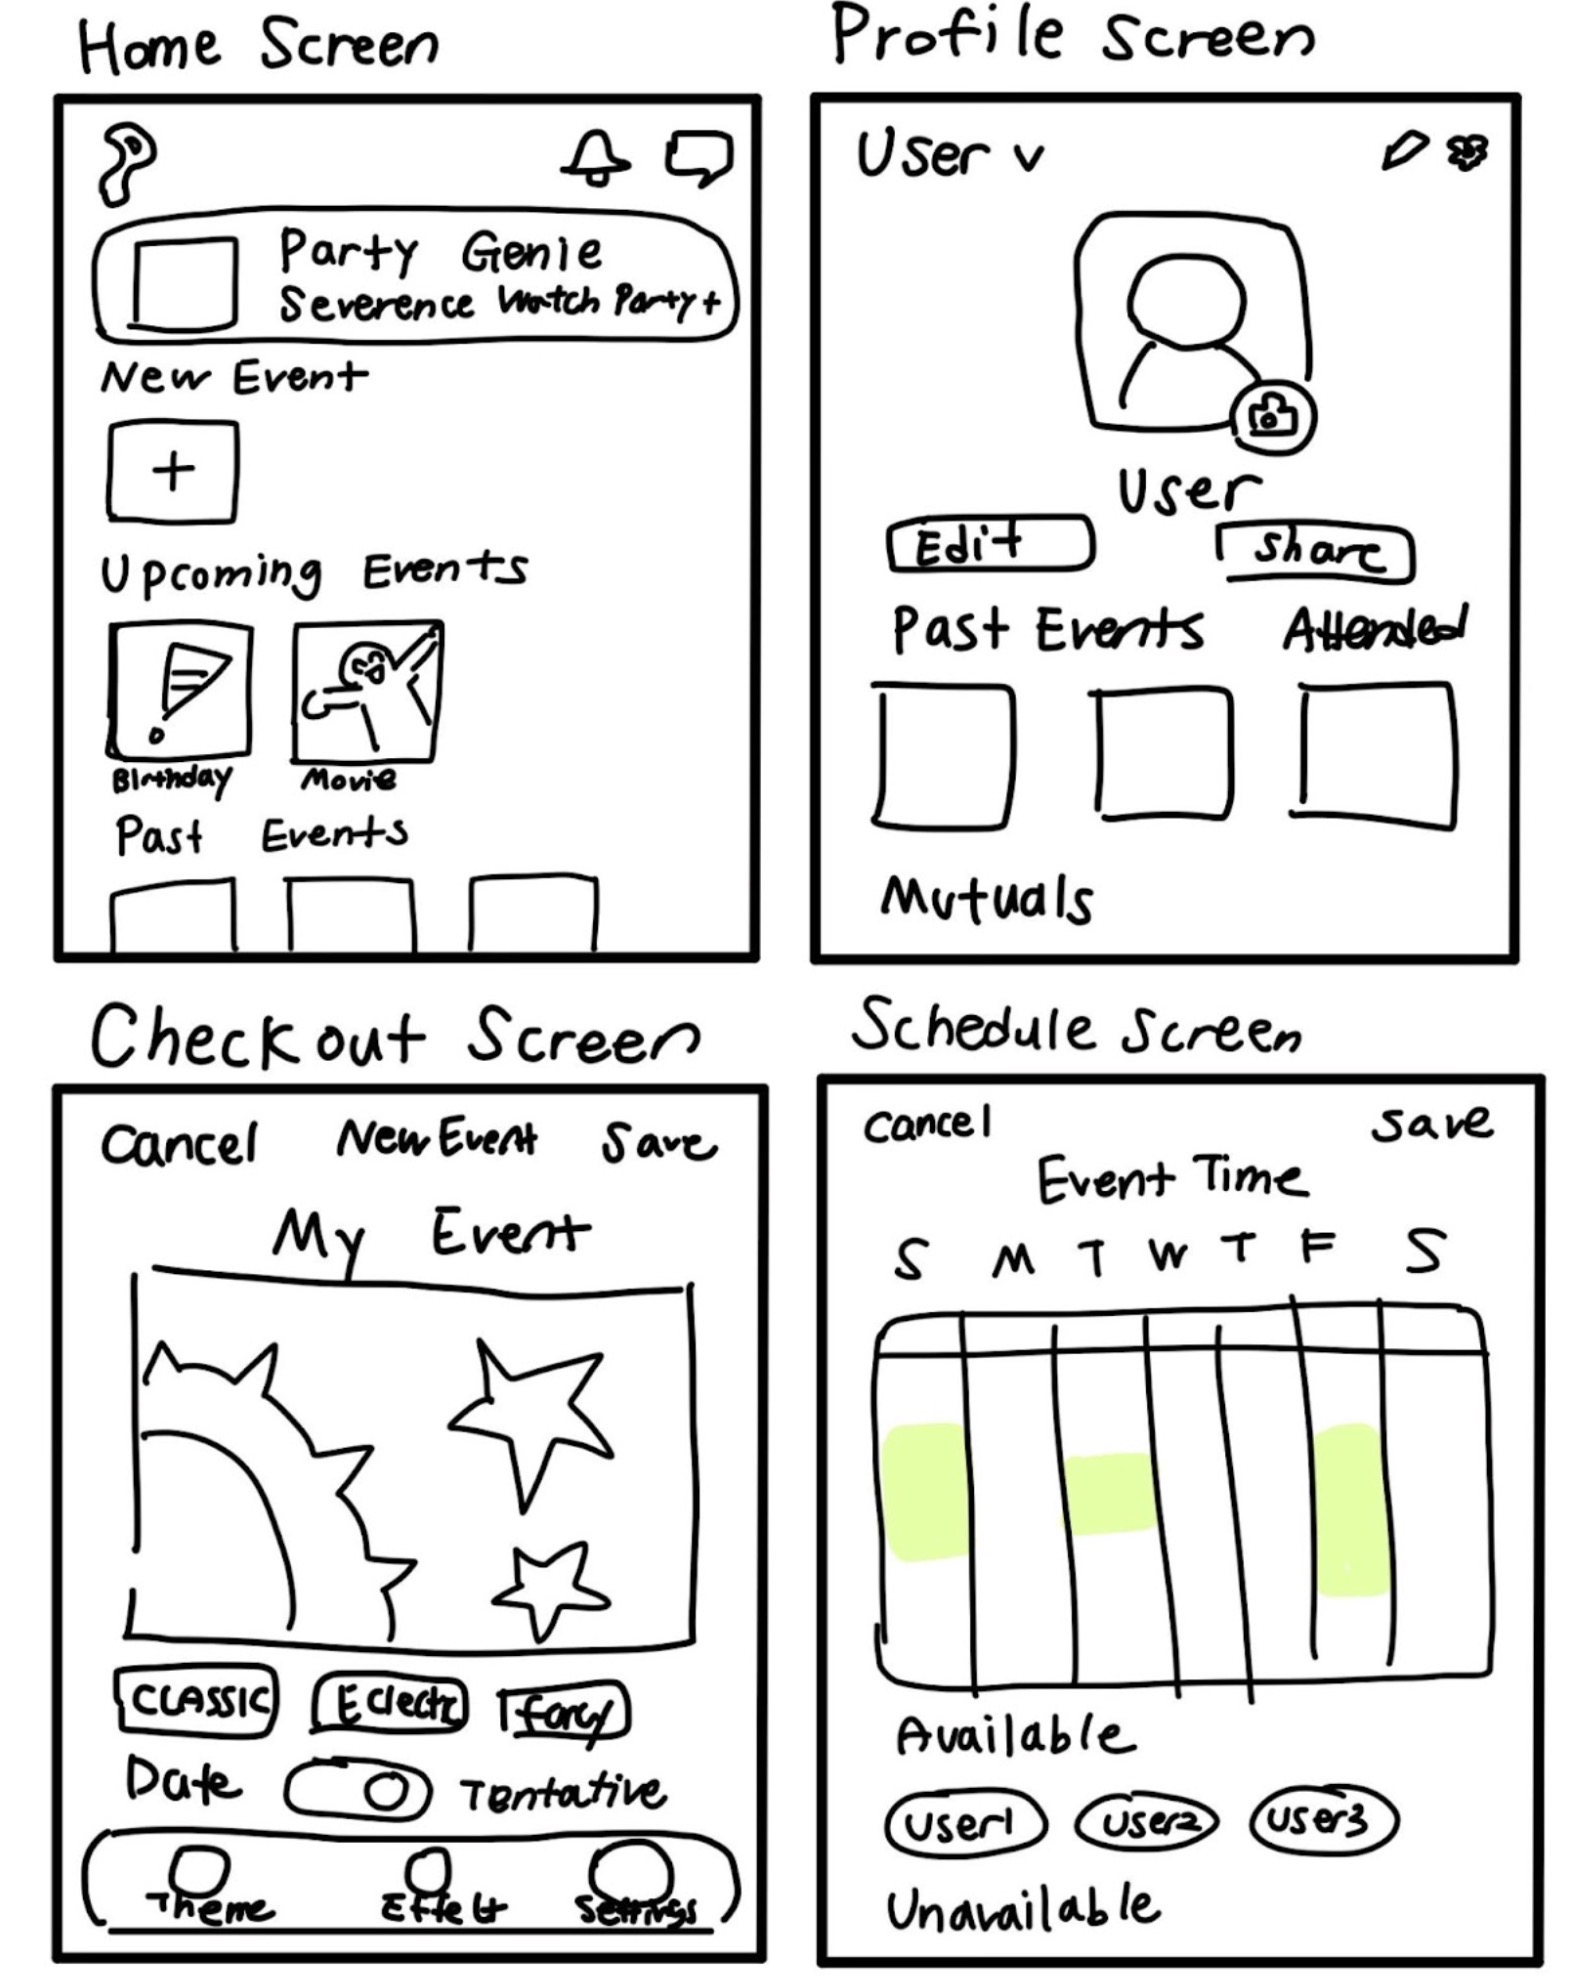 Home Screen
Party Genie
Severence Watch Party +
New Event
+
Upcoming Events
Birthday Movie
Past Events
Profile Screen
User v
User
Edit Share
Past Events Attended
Mutuals
Checkout Screen
Cancel New Event Save
My Event
CLASSIC Eclectic Fancy
Date Tentative
Theme Effect Settings
Schedule Screen
Cancel Save
Event Time
S M T W T F S
Available
user1 user2 user3
Unavailable